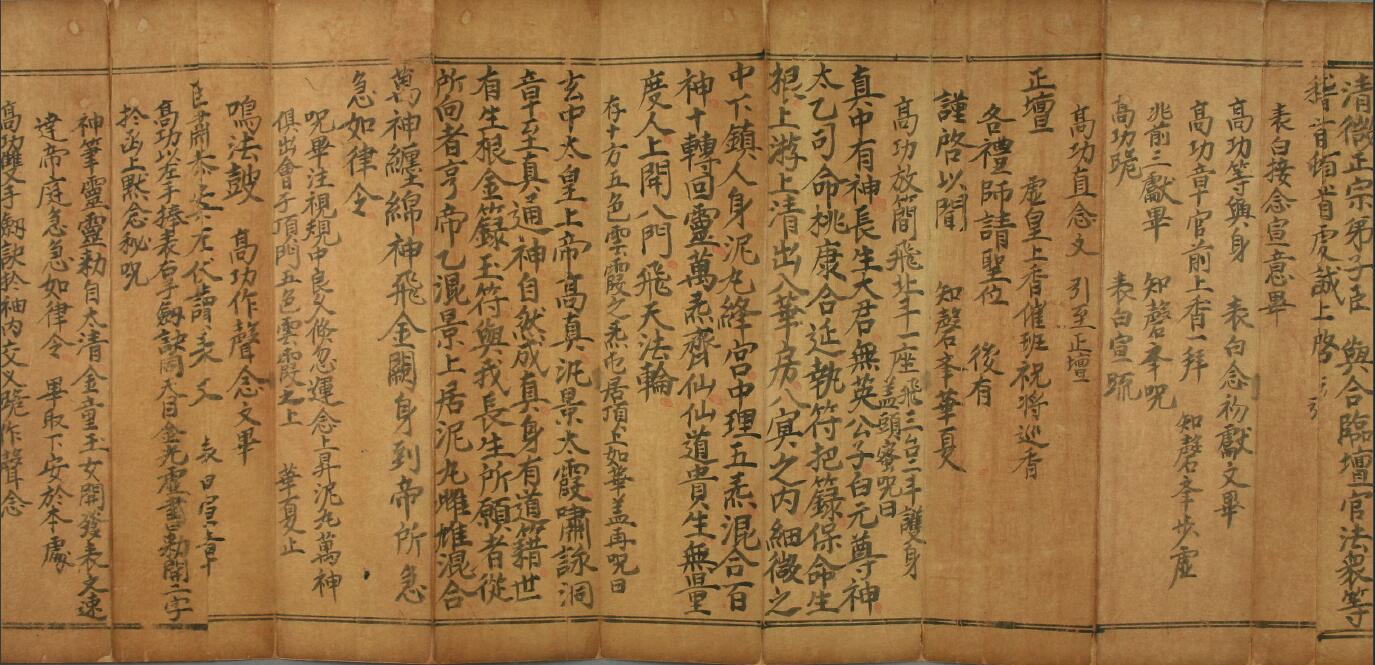 清微正宗弟子臣 與合臨壇官法衆等
稽首頓首虔誠上啓
表白接念宣意畢
高功等興身 表白念初獻文畢
高功章官前上香一拜 知磬舉步虛
兆前三獻畢 知磬舉呪
高功跪 表白宣疏
高功直念文 引至正壇
正壇 虛皇上香催班祝將巡香
各禮師請聖位 後有
謹啓以聞 知磬舉華夏
高功放簡飛北斗一座飛三台二斗護身
蓋頭密呪曰
真中有神長生大君無英公子白元尊神
太乙司命桃康合延執符把籙保命生
根上游上清出入華房八冥之内細微之
中下鎮人身泥丸絳宮中理五炁混合百
神十轉回靈萬炁齊仙仙道貴生無量
度人上開八門飛天法輪
存十方五色雲霞之炁屯居頂上如華盖再呪曰
玄中太皇上帝高真汎景太霞嘯詠洞
章上至真通神自然成真身有道籍世
有生根金籙玉符與我長生所願者從
所向者亨帝乙混景上居泥丸雌雄混合
萬神纏綿神飛金闕身到帝所急
急如律令
呪畢注視規中良久倏忽運念上昇泥丸萬神
俱出會于頂門五色雲霞之上 華夏止
鳴法鼓 高功作聲念文畢
臣肅 代讀表文 表白宣章
高功以左手捧表右手劍訣 天目金光虛書勅開二字
於函上默念秘呪
神筆靈靈勅自太清金童玉女開發表文速
達帝庭急急如律令 畢取下安於本處
高功雙手劍訣於袖内交叉跪作聲念